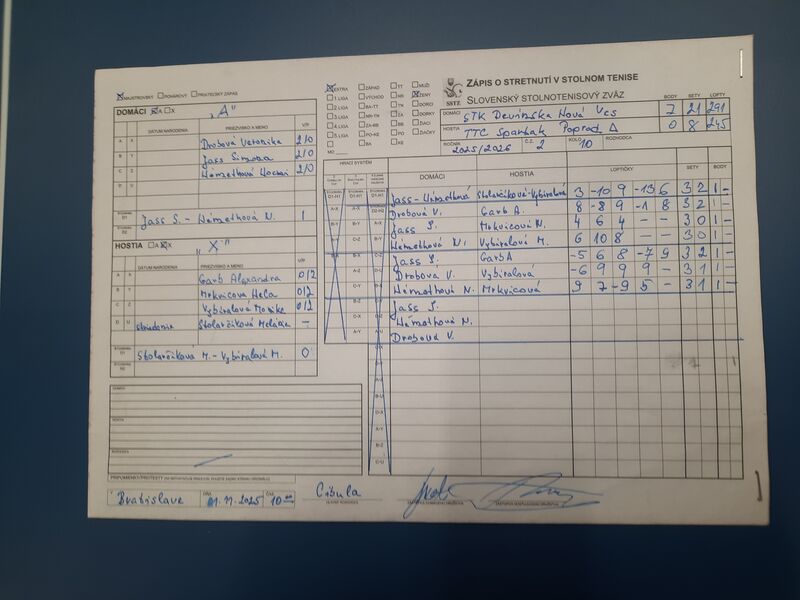 MAJSTROVSKÝ POHÁROVÝ PRIATEĽSKÝ ZÁPAS
DOMÁCI A X "A"
DÁTUM NARODENIA PRIEZVISKO A MENO V/P
A X Drobová Veronika 2/0
B Y Jass Simona 2/0
C Z 2/0
D U
D1 Jass S. - Némethová N. 1
D2
HOSTIA A X "X"
DÁTUM NARODENIA PRIEZVISKO A MENO V/P
A X Garb Alexandra 0/2
B Y Mrkvicova Hela 0/2
C Z Vybíralova Monika 0/2
D U striedanie Stolarčíková —
D1 Stolarčíkova M. - Vybíralová M. 0
D2
DOMÁCI
HOSTIA
PRIPOMIENKY/PROTESTY
EXTRA ZÁPAD TT MUŽI
1. LIGA VÝCHOD NR ŽENY
2. LIGA BA-TT TN DORCI
3. LIGA NR-TN ZA DORKY
4. LIGA ZA-BB BB ŽIACI
5. LIGA PO-KE PO ŽIAČKY
BA KE
MO
SSTZ
ZÁPIS O STRETNUTÍ V STOLNOM TENISE
SLOVENSKÝ STOLNOTENISOVÝ ZVÄZ
BODY SETY LOPTY
DOMÁCI STK Devínska Nová Ves 7 21 291
HOSTIA TTC Spartak Poprad A 0 8 245
ROČNÍK 2025/2026 Č.Z. 2 KOLO 10 ROZHODCA
HRACÍ SYSTÉM
DOMÁCI HOSTIA LOPTIČKY SETY BODY
Jass-Némethová Stolarčíková-Vybíralová 3 -10 9 -13 6 3 2 1 -
Drobová V. Garb A. 8 -8 9 -1 8 3 2 1 -
Jass S. Mrkvicová H. 4 6 4 - - 3 0 1 -
Némethová N. Vybíralová M. 6 10 8 - - 3 0 1 -
Jass S. Garb A -5 6 8 -7 9 3 2 1 -
Drobova V. Vybíralová -6 9 9 9 - 3 1 1 -
Némethová N. Mrkvicová 9 7 -9 5 - 3 1 1 -
Jass S.
Némethová N.
Drobová V.
Bratislava DŇA 01.11.2025 ČAS 10 00 Cibula